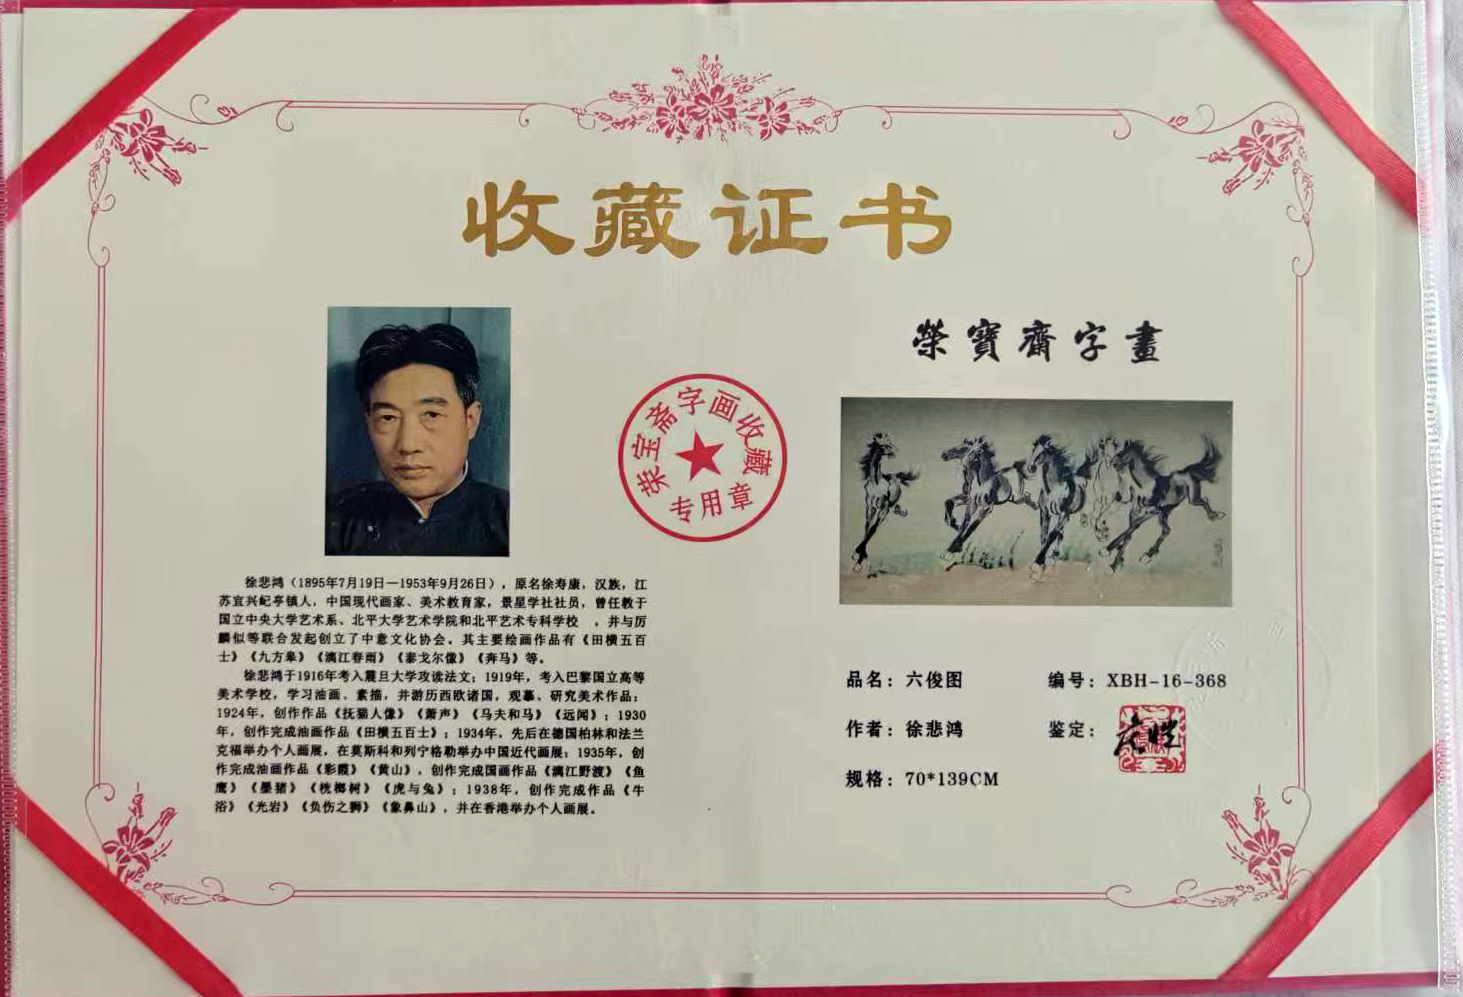 收藏证书
榮寶齋字畫
荣宝斋字画收藏
专用章
徐悲鸿（1895年7月19日—1953年9月26日），原名徐寿康，汉族，江
苏宜兴屺亭镇人，中国现代画家、美术教育家，景星学社社员，曾任教于
国立中央大学艺术系、北平大学艺术学院和北平艺术专科学校 ，并与厉
麟似等联合发起创立了中意文化协会。其主要绘画作品有《田横五百
士》《九方皋》《漓江春雨》《泰戈尔像》《奔马》等。
徐悲鸿于1916年考入震旦大学攻读法文；1919年，考入巴黎国立高等
美术学校，学习油画、素描，并游历西欧诸国，观摹、研究美术作品；
1924年，创作作品《抚猫人像》《萧声》《马夫和马》《远闻》；1930
年，创作完成油画作品《田横五百士》；1934年，先后在德国柏林和法兰
克福举办个人画展，在莫斯科和列宁格勒举办中国近代画展；1935年，创
作完成油画作品《彩霞》《黄山》，创作完成国画作品《漓江野渡》《鱼
鹰》《墨猪》《桄榔树》《虎与兔》；1938年，创作完成作品《牛
浴》《光岩》《负伤之狮》《象鼻山》，并在香港举办个人画展。
品名：六俊图
编号：XBH-16-368
作者：徐悲鸿
鉴定：
规格：70*139CM